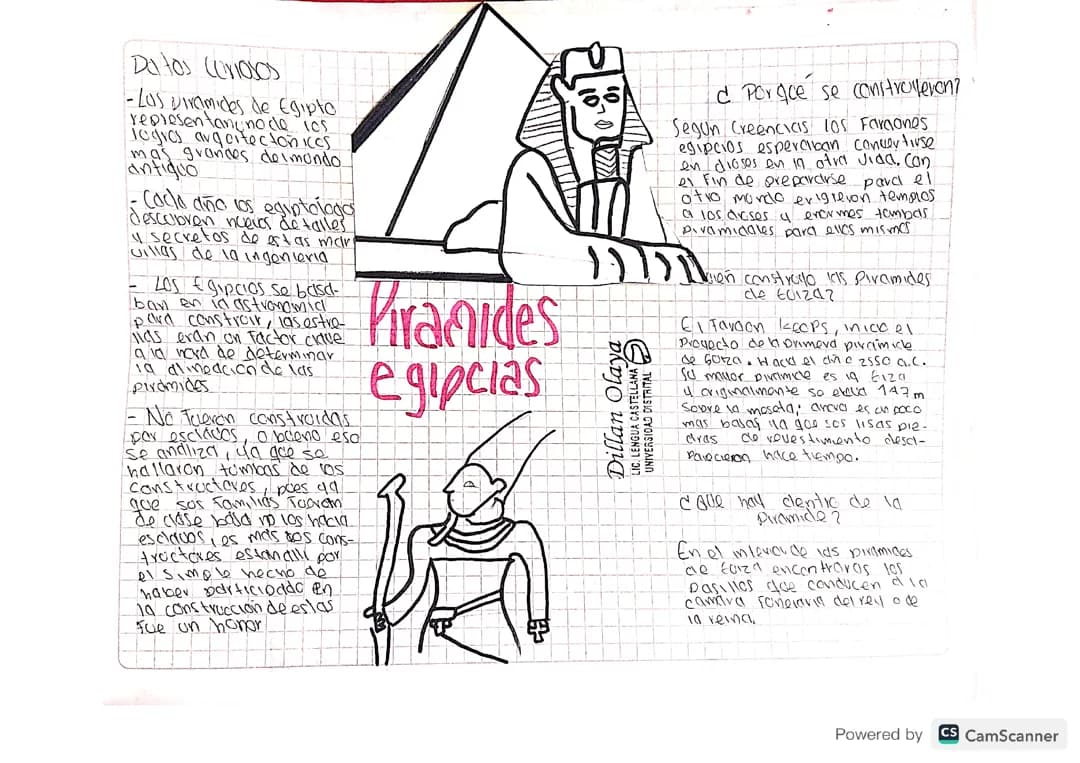 Datos Curiosos
-Las piramides de Egipto
representan uno de los
logros arquitectonicos
mas grandes del mundo
antiguo
- Cada año los egiptologos
descubren nuevos detalles
y secretos de estas mara
villas de la ingenieria
- Los Egipcios se basa-
ban en la astronomia
para construir, las estre-
llas eran un factor clave
a la hora de determinar
la alineación de las
piramides
- No fueron construidas
por esclavos, o bueno eso
se analiza, ya que se
hallaron tumbas de los
constructores, pues ya
que sus familias fueran
de clase baja no los hacia
esclavos, es mas los cons-
tructores estan alli por
el simple hecho de
haber participado en
la construcción de estas
fue un honor
Piramides
egipcias
Dillan Olaya
LIC. LENGUA CASTELLANA
UNIVERSIDAD DISTRITAL
¿ Por qué se construyeron?
Segun Creencias los Faraones
egipcios esperaban convertirse
en dioses en la otra vida. Con
el fin de prepararse para el
otro mundo erigieron templos
a los dioses y enormes tumbas
piramidales para ellos mismos
construyo las Piramides
de Guiza?
El faraon Keops, inicio el
Proyecto de la primera piramide
de Guiza. Hacia el año 2550 a.c.
Su mayor piramide es la Guiza
y originalmente se 147m
Sobre la meseta; ahora es un poco
mas baja, ya que sus lisas pie-
dras de revestimiento desa-
parecieron hace tiempo.
¿Que hay dentro de la
Piramide?
En el interior de las piramides
de Guiza encontraras los
pasillos que conducen a la
camara funeraria del rey o de
la reina.
Powered by CS CamScanner